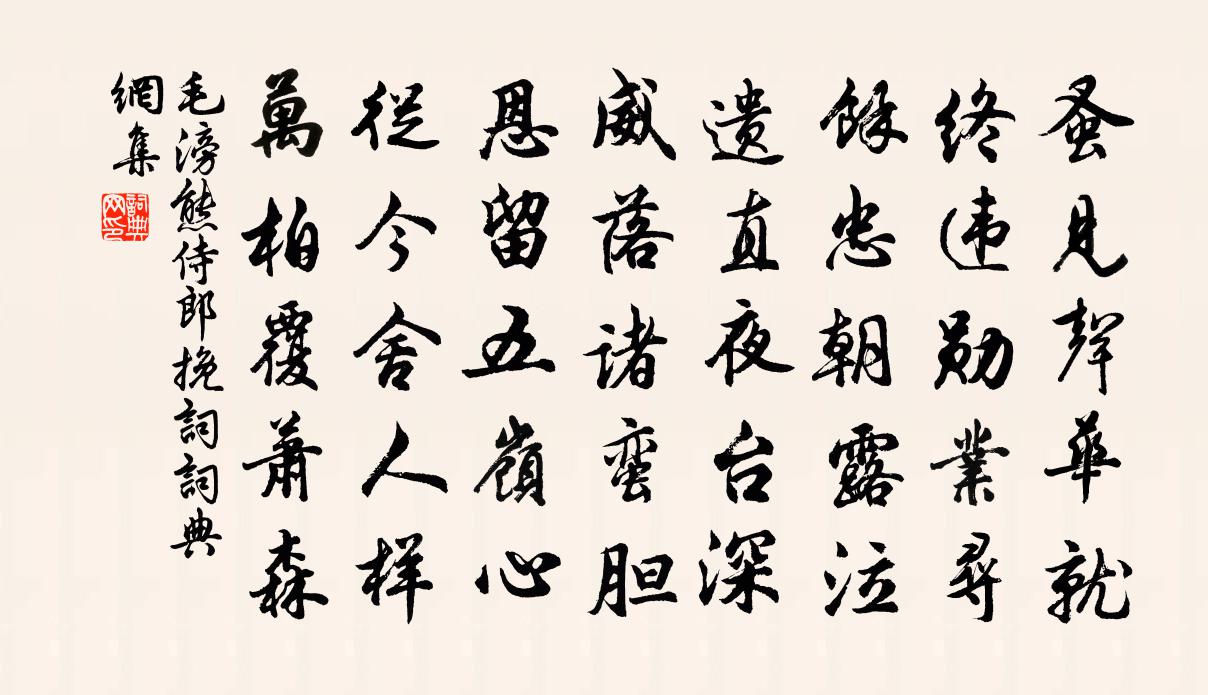 蚤见声華就
终违勋業尋
餘忠朝露泣
遗直夜台深
威落诸蛮胆
恩留五嶺心
従今舍人样
萬柏覆萧森
毛滂熊侍郎挽詞詞典
網集
詞典
网印